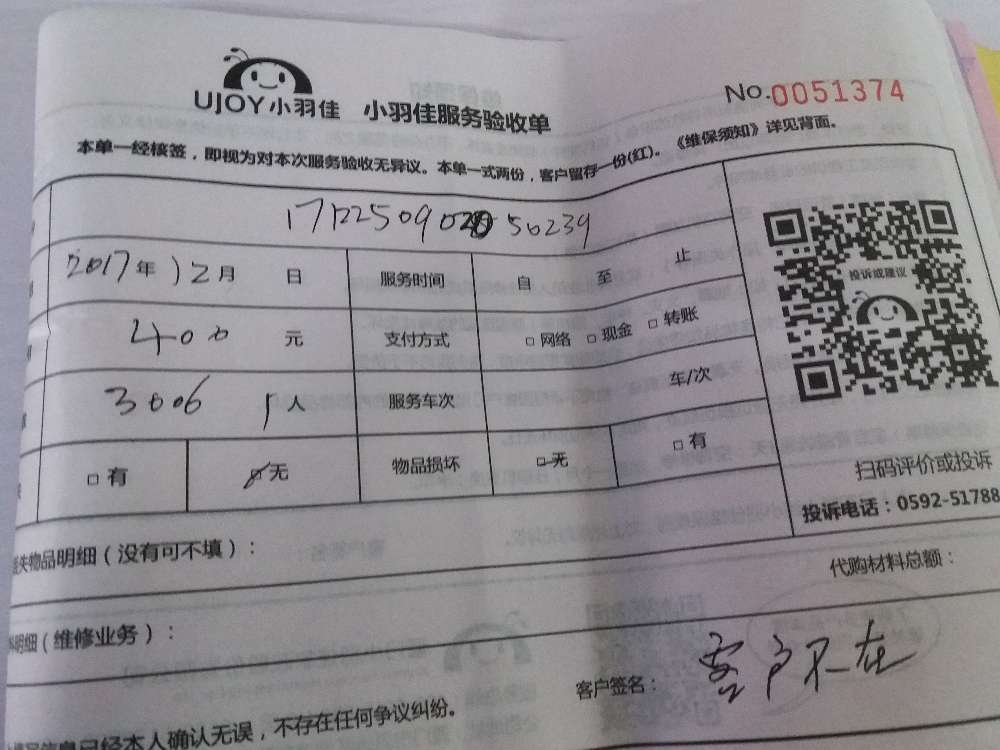 UJOY小羽佳 小羽佳服务验收单
No.0051374
本单一经核签，即视为对本次服务验收无异议。本单一式两份，客户留存一份(红)。《维保须知》详见背面。
2017年12月 日 服务时间 自 至 止
400 元 支付方式 □网络 □现金 □转账
3006 1人 服务车次 车/次
□有 □无 物品损坏 □无 □有
投诉或建议
扫码评价或投诉
投诉电话：0592-51788
失物品明细（没有可不填）：
代购材料总额：
明细（维修业务）：
客户签名： 客户不在
信息已经本人确认无误，不存在任何争议纠纷。